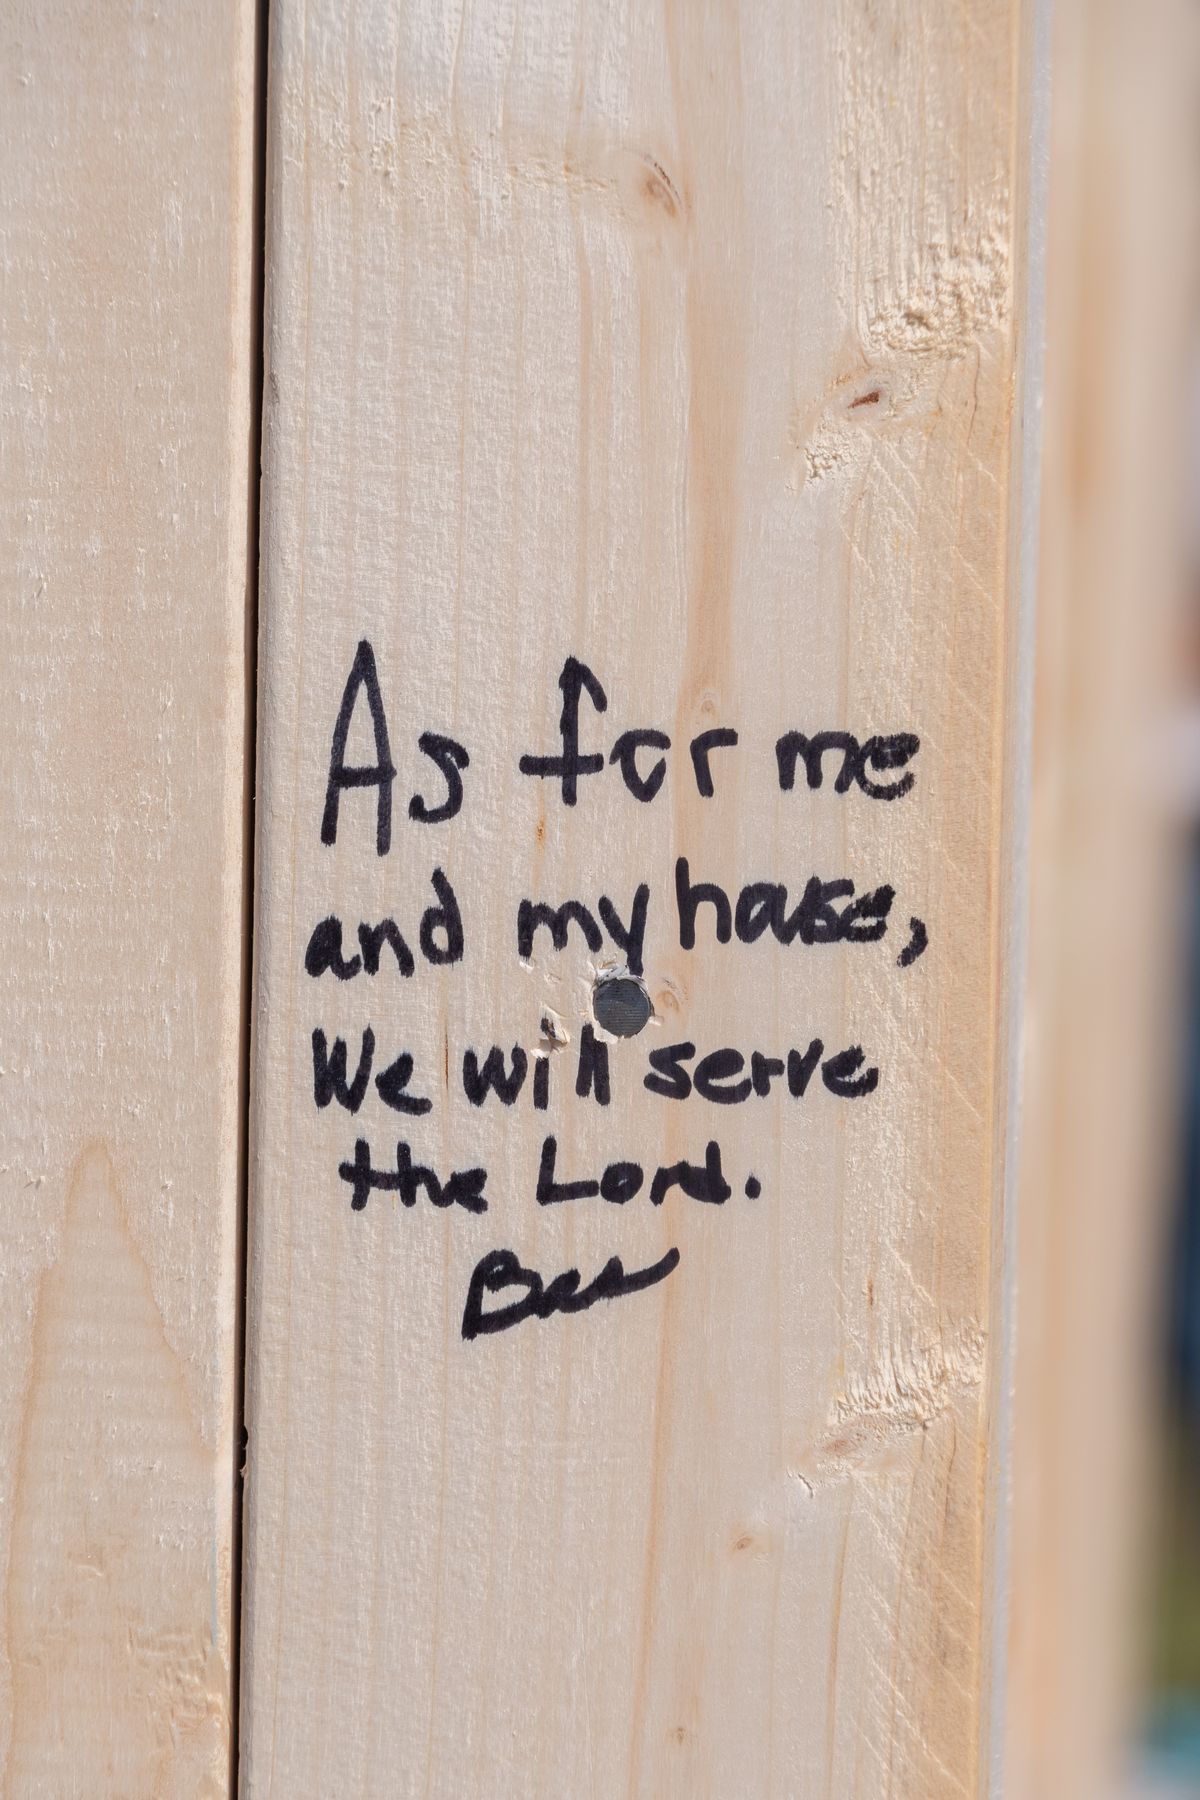 As for me
and my house,
We will serve
the Lord.